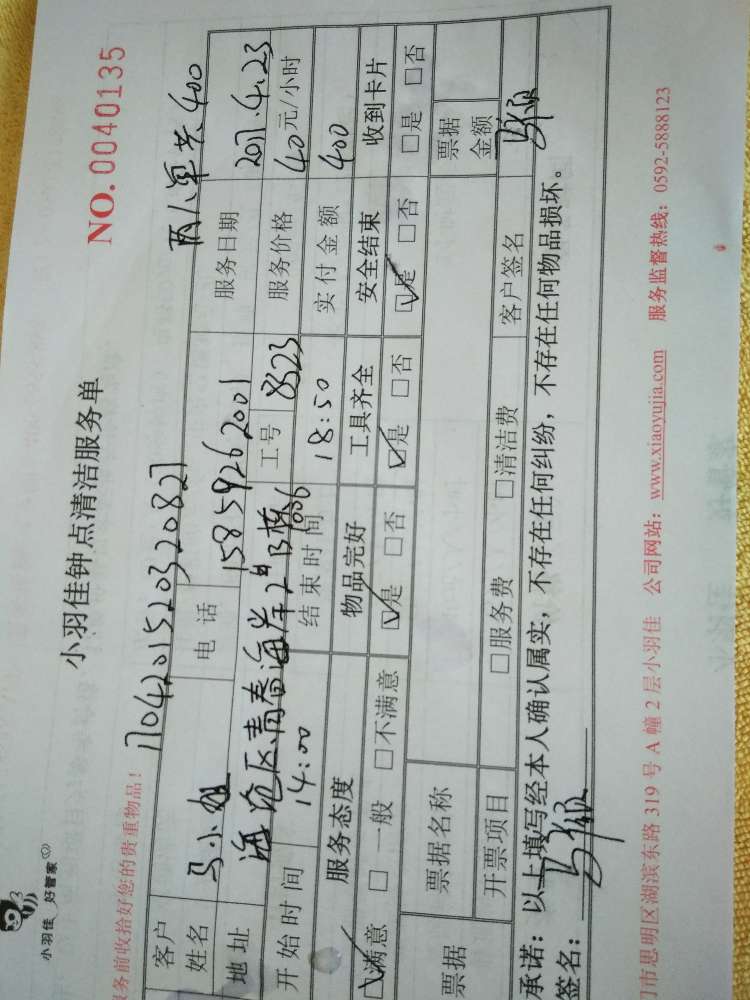 小羽佳 好管家
小羽佳钟点清洁服务单
NO.0040135
务前收拾好您的贵重物品！
1704201520320821
两人单共400
客户姓名 马小姐 电话 15859262001 服务日期 2017.4.23
地址 海沧区青春海岸2#B栋1006 工号 8323 服务价格 40元/小时
开始时间 14:00 结束时间 18:50 实付金额 400
服务态度 物品完好 工具齐全 安全结束 收到卡片
☑满意 □一般 □不满意 ☑是 □否 ☑是 □否 ☑是 □否 □是 □否
票据 票据名称 票据金额
开票项目 □服务费 □清洁费 客户签名
承诺：以上填写经本人确认属实，不存在任何纠纷，不存在任何物品损坏。
签名：
市思明区湖滨东路319号A幢2层小羽佳 公司网站：www.xiaoyujia.com 服务监督热线：0592-5888123